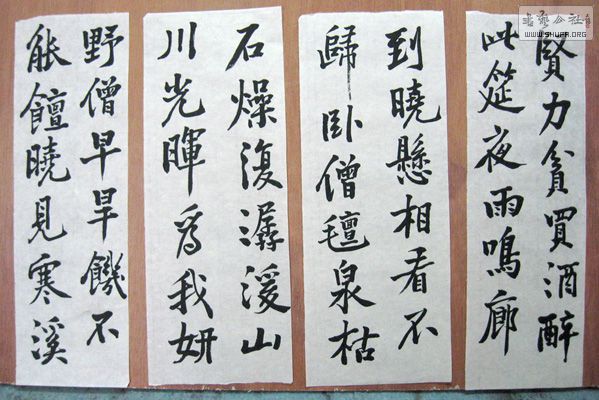 賢力貧買酒醉
此筵夜雨鳴廊
到曉懸相看不
歸臥僧氊泉枯
石燥復潺湲山
川光暉為我妍
野僧早旱饑不
能饘曉見寒溪
WWW.SHUFA.ORG